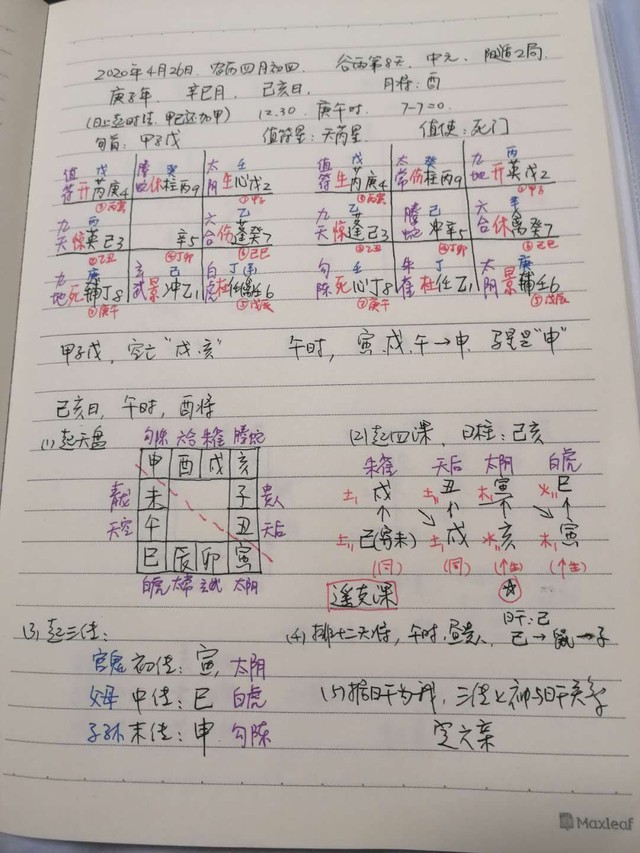 2020年4月26日. 农历四月初四. 谷雨第8天. 中元. 阳遁2局.
庚子年. 辛巳月. 己亥日. 月将: 酉
(日上起时法. 甲己还加甲) 12.30. 庚午时. 7-7=0.
旬首: 甲子戊 值符星: 天芮星. 值使: 死门
值符 戊 开芮庚4 ③丙寅 腾蛇 癸 休柱丙9 太阴 壬 生心戊2 ①甲子 值符 生芮庚4 戊 ③丙寅 太常 癸 伤柱丙9 九地 丙 开英戊2 ①甲子
九天 丙 惊英己3 ②乙丑 辛5 ④丁卯 六合 乙 伤蓬癸7 ⑥己巳 九天 乙 惊蓬己3 ②乙丑 腾蛇 己 冲辛5 ④丁卯 六合 辛 休禽癸7 ⑥己巳
九地 庚 死辅丁8 ⑦庚午 玄武 己 景冲乙1 白虎 丁 杜任禽壬6 ⑤戊辰 勾陈 壬 死心丁8 ⑦庚午 朱雀 丁 杜任乙1 太阴 庚 景辅壬6 ⑤戊辰
甲子戊, 空亡“戌.亥” 午时, 寅.戌.午→申. 马星是“申”
己亥日, 午时, 酉将
(1)起天盘 勾陈 六合 朱雀 腾蛇 (2)起四课, 日柱: 己亥
申 酉 戌 亥 朱雀 天后 太阴 白虎
青龙 未 子 贵人 土 戌 土 丑 木 寅 火 巳
天空 午 丑 天后 土 己(寄未) 土 戌 水 亥 木 寅
巳 辰 卯 寅 (同) (同) (↑生) (↑生)
白虎 太常 玄武 太阴 遥克课 ☆
(3)起三传: (4)排十二天将, 午时, 昼贵人, 日干:己
己→鼠→子
官鬼 初传: 寅, 太阴
父母 中传: 巳 白虎 (5)据日干为我, 三传与日干关系
子孙 末传: 申 勾陈 定六亲
Maxleaf